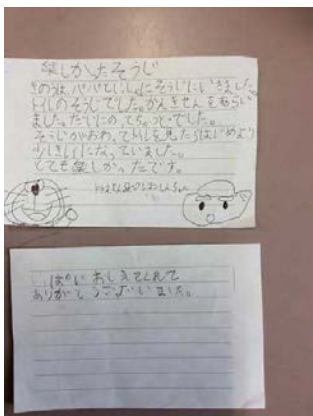 楽しかったそうじ
きのうは、パパといっしょにそうじにいきました。
トイレのそうじでした。かんきせんをあらい
ました。
でした。
そうじがおわってトイレを見たらはじめより
少しきれいになっていました。
とても楽しかったです。
おしえてくれて
ありがとうございました。